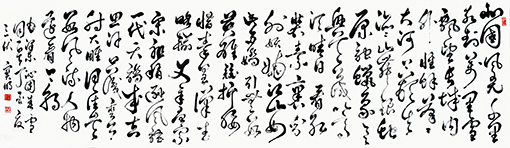 北国风光千里
冰封万里雪
飘望长城内
外惟馀莽莽
大河上下顿失
滔滔山舞银蛇
原驰蜡象欲
与天公试比高
须晴日看红
装素裹分外
妖娆江山如
此多娇引无数
英雄竞折腰
惜秦皇汉武
略输文采唐宗
宋祖稍逊风骚
一代天骄成吉
思汗只识弯弓
射雕俱往矣
数风流人物
还看今朝
沁园春雪
丁酉夏
三伏